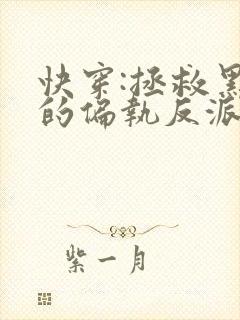 快穿:拯救黑
的偏执反派
紫一月